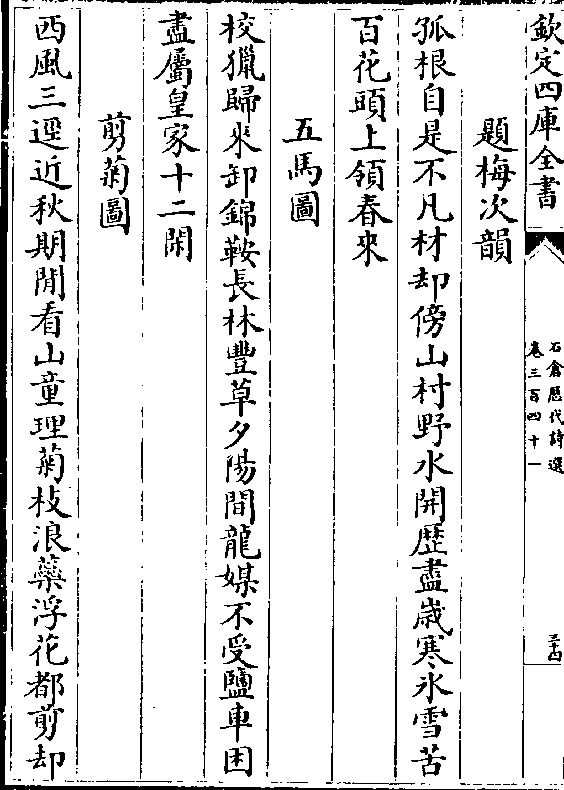 欽定四庫全書
石倉歷代詩選
卷三百四十一
三十四
題梅次韻
孤根自是不凡材却傍山村野水開歴盡歲寒氷雪苦
百花頭上領春來
五馬圖
校獵歸來卸錦鞍長林豐草夕陽間龍媒不受鹽車困
盡屬皇家十二閑
剪菊圖
西風三逕近秋期閒看山童理菊枝浪蘂浮花都剪却